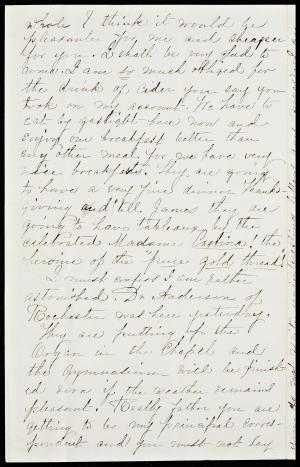 whole I think it would be
pleasanter for me and cheaper
for you. I shall be very glad to
come. I am so much obliged for
the drink of cider you say you
took on my account. We have to
eat by gaslight here now and
enjoy our breakfast better than
any other meal, for we have very
nice breakfasts. They are going
to have a very fine dinner Thanks-
giving and tell James they are
going to have tableaux by the
celebrated Madame the
heroine of the "pure gold thread"
I must confess I am rather
astonished Dr. Anderson of
Rochester was here yesterday.
They are putting up the
Organ in the Chapel and
the Gymnasium will be finish-
ed soon if the weather remains
pleasant. Really father you are
getting to be my principal corres-
pondent and you must not say